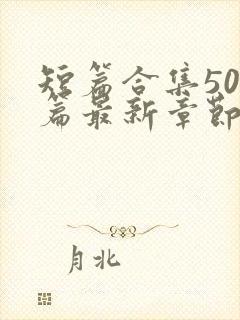 短篇合集50
篇最新章節
月北